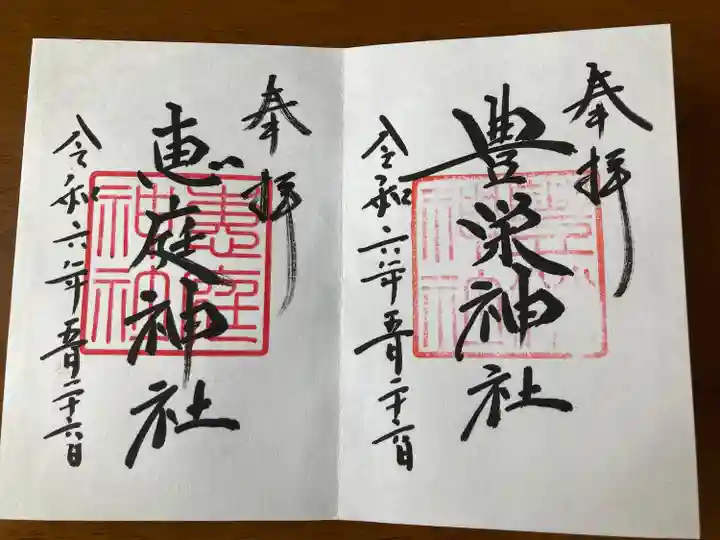 奉拝
豊栄神社
令和六年五月二十六日
奉拝
恵庭神社
令和六年五月二十六日
恵庭
神社